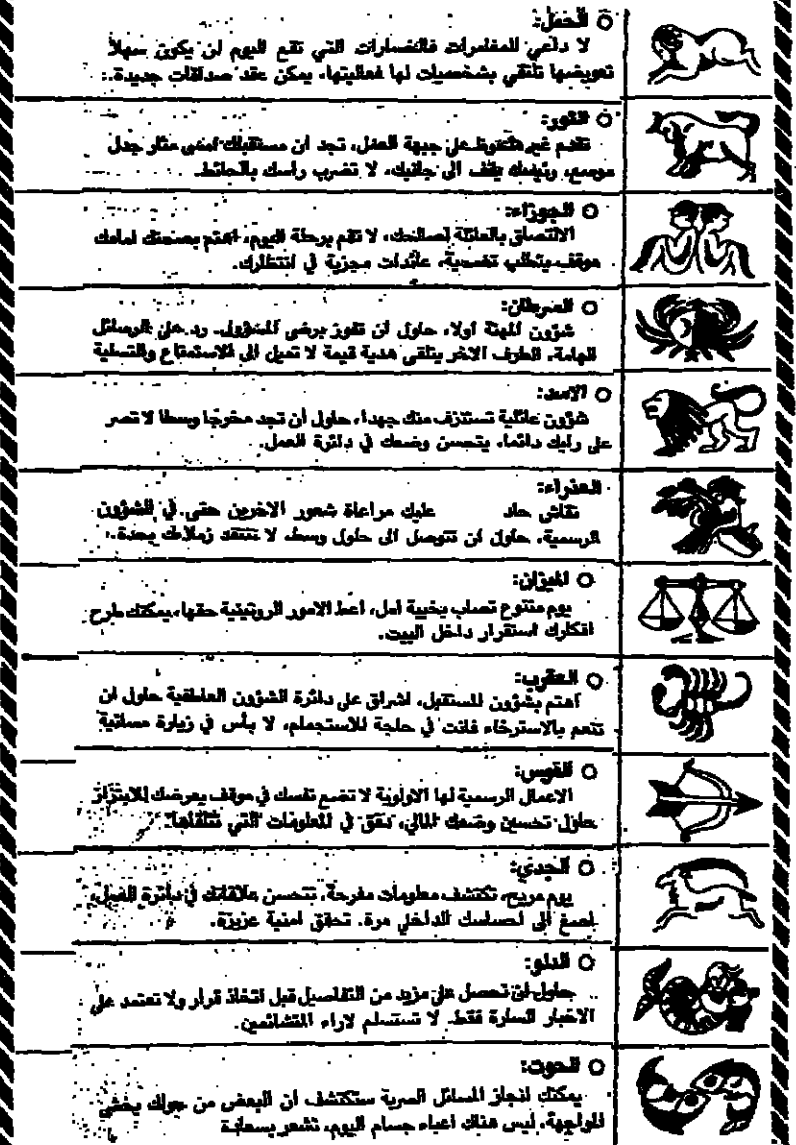 الحمل:
لا داعي للمغامرات فالخسارات التي تقع اليوم لن يكون سهلاً
تعويضها تلتقي بشخصيات لها فعاليتها، يمكن عقد صداقات جديدة.
الثور:
تقدم غير ملحوظ على جبهة العمل، تجد ان مستقبلك امسى مثار جدل
موسع، وزميلك يقف الى جانبك، لا تضرب راسك بالحائط.
الجوزاء:
الالتصاق بالعائلة لصالحك، لا تقم برحلة اليوم، اهتم بصحتك امامك
موقف يتطلب تضحية، عائدات مجزية في انتظارك.
السرطان:
شؤون المهنة اولا، حاول ان تفوز برضى المسؤول، رد على الرسائل
الهامة، الطرف الاخر يتلقى هدية قيمة لا تميل الى الاستمتاع والتسلية
الاسد:
شؤون عائلية تستنزف منك جهدا، حاول أن تجد مخرجا وسطا لا تصر
على رايك دائما، يتحسن وضعك في دائرة العمل.
العذراء:
نقاش حاد عليك مراعاة شعور الاخرين حتى في الشؤون
الرسمية، حاول ان تتوصل الى حلول وسط، لا تنتقد زملاءك بحدة.
الميزان:
يوم متنوع تصاب بخيبة امل، اعط الامور الروتينية حقها، يمكنك طرح
افكارك استقرار داخل البيت.
العقرب:
اهتم بشؤون المستقبل، اشراق على دائرة الشؤون العاطفية حاول ان
تنعم بالاسترخاء فانت في حاجة للاستجمام، لا بأس في زيارة مسائية
القوس:
الاعمال الرسمية لها الاولوية لا تضع نفسك في موقف يعرضك للابتزاز
حاول تحسين وضعك المالي، دقق في المعلومات التي تتلقاها.
الجدي:
يوم مريح، تكتشف معلومات مفرحة، تتحسن علاقاتك في دائرة العمل،
اصغ الى احساسك الداخلي مرة، تحقق امنية عزيزة.
الدلو:
حاول ان تحصل على مزيد من التفاصيل قبل اتخاذ قرار ولا تعتمد على
الاخبار السارة فقط، لا تستسلم لاراء المتشائمين.
الحوت:
يمكنك انجاز المسائل السرية ستكتشف ان البعض من حولك يخشى
المواجهة، ليس هناك اعباء جسام اليوم، تشعر بسعادة